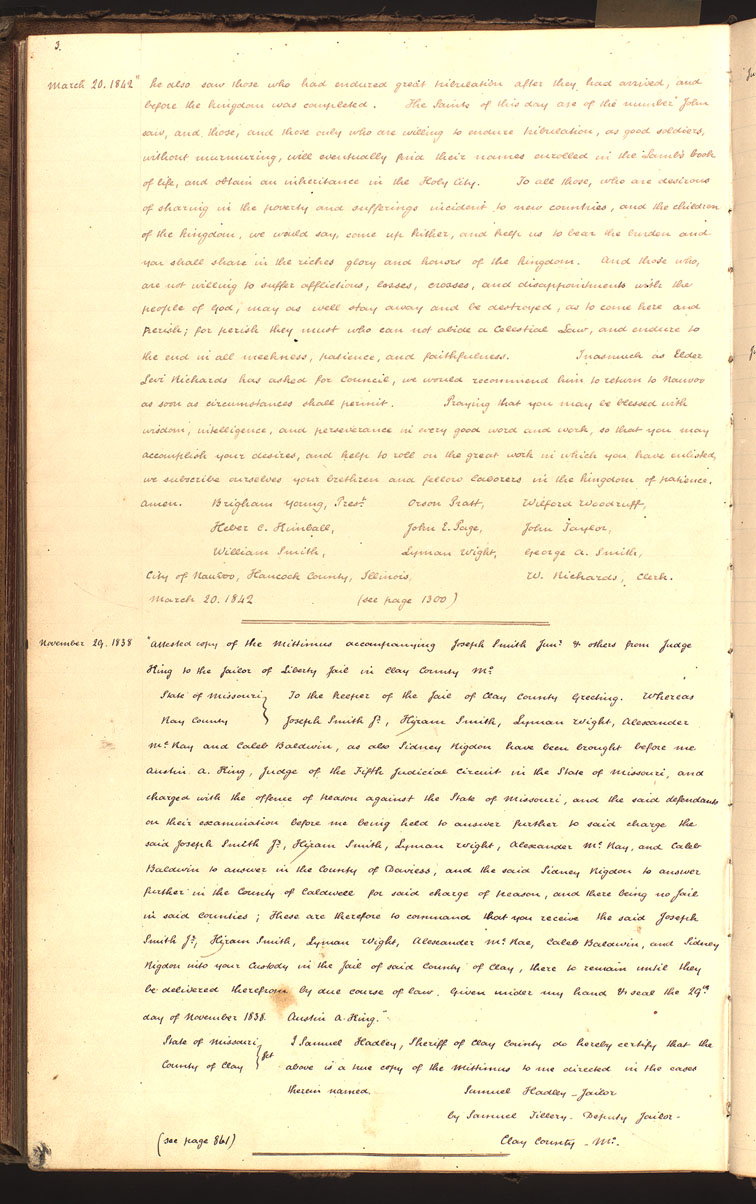 3.
March 20. 1842 " he also saw those who had endured great tribulation after they had arrived, and
before the kingdom was completed. The Saints of this day are of the number John
saw, and those, and those only who are willing to endure tribulation, as good soldiers,
without murmuring, will eventually find their names enrolled in the Lamb's book
of life, and obtain an inheritance in the Holy City. To all those, who are desirous
of sharing in the poverty and sufferings incident to new countries, and the children
of the kingdom, we would say, come up hither, and help us to bear the burden and
you shall share in the riches glory and honors of the kingdom. And those who,
are not willing to suffer afflictions, losses, crosses, and disappointments with the
people of God, may as well stay away and be destroyed, as to come here and
perish; for perish they must who can not abide a Celestial Law, and endure to
the end in all meekness, patience, and faithfulness. Inasmuch as Elder
Levi Richards has asked for Council, we would recommend him to return to Nauvoo
as soon as circumstances shall permit. Praying that you may be blessed with
wisdom, intelligence, and perseverance in every good word and work, so that you may
accomplish your desires, and help to roll on the great work in which you have enlisted,
we subscribe ourselves your brethren and fellow laborers in the kingdom of patience.
Amen. Brigham Young, Prest. Orson Pratt, Wilford Woodruff,
Heber C. Kimball, John E. Page, John Taylor,
William Smith, Lyman Wight, George A. Smith,
City of Nauvoo, Hancock County, Illinois, W. Richards, Clerk.
March 20. 1842 (see page 1300)
November 29. 1838 "Attested copy of the Mittimus accompanying Joseph Smith Junr. & others from Judge
King to the Jailor of Liberty Jail in Clay County Mo.
State of Missouri } To the keeper of the Jail of Clay County Greeting. Whereas
Ray County } Joseph Smith Jr., Hyram Smith, Lyman Wight, Alexander
Mc. Ray and Caleb Baldwin, as also Sidney Rigdon have been brought before me
Austin A. King, Judge of the Fifth Judicial Circuit in the State of Missouri, and
charged with the offence of treason against the State of Missouri, and the said defendants
on their examination before me being held to answer further to said charge the
said Joseph Smith Jr., Hyram Smith, Lyman Wight, Alexander Mc. Ray, and Caleb
Baldwin to answer in the County of Daviess, and the said Sidney Rigdon to answer
further in the County of Caldwell for said charge of treason, and there being no Jail
in said Counties; These are therefore to command that you receive the said Joseph
Smith Jr., Hyram Smith, Lyman Wight, Alexander Mc. Rae, Caleb Baldwin, and Sidney
Rigdon into your custody in the Jail of said County of Clay, there to remain until they
be delivered therefrom by due course of law. Given under my hand & seal the 29th
day of November 1838. Austin A. King."
State of Missouri } I Samuel Hadley, Sheriff of Clay County do hereby certify that the
County of Clay } above is a true copy of the Mittimus to me directed in the cases
therein named. Samuel Hadley - Jailor
by Samuel Tillery - Deputy Jailor -
(see page 861) Clay County - Mo.